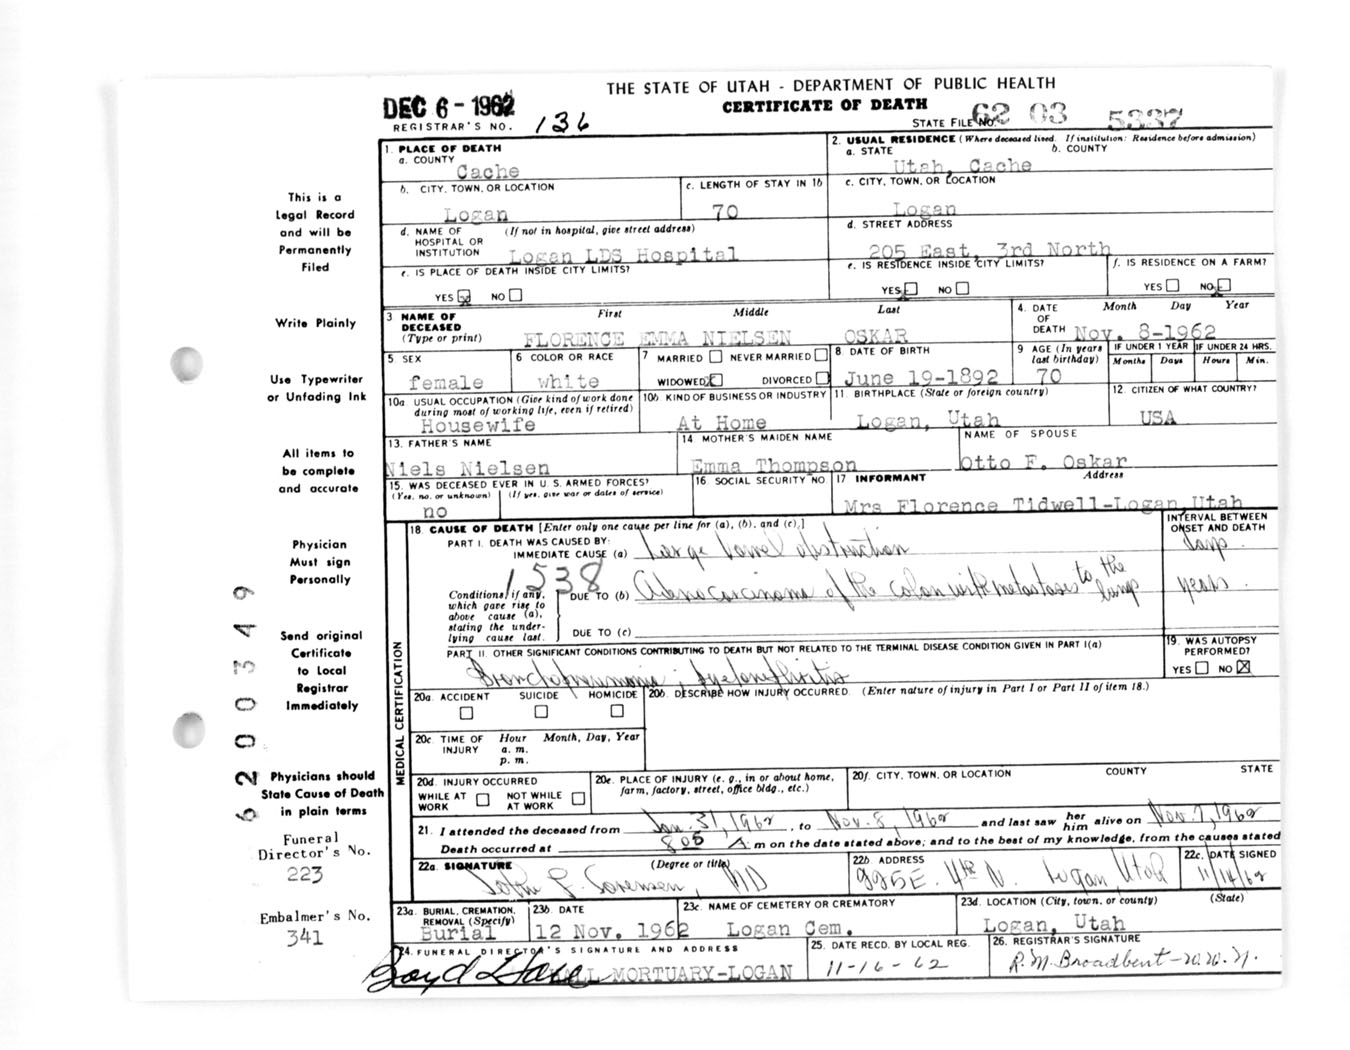 THE STATE OF UTAH - DEPARTMENT OF PUBLIC HEALTH
DEC 6 - 1962 CERTIFICATE OF DEATH
REGISTRAR'S NO. 136 STATE FILE NO. 62 03 5337
1. PLACE OF DEATH
a. COUNTY
Cache
2. USUAL RESIDENCE (Where deceased lived. If institution: Residence before admission)
a. STATE b. COUNTY
Utah, Cache
b. CITY, TOWN, OR LOCATION
Logan
c. LENGTH OF STAY IN 1b
70
c. CITY, TOWN, OR LOCATION
Logan
d. NAME OF HOSPITAL OR INSTITUTION (If not in hospital, give street address)
Logan LDS Hospital
d. STREET ADDRESS
205 East, 3rd North
e. IS PLACE OF DEATH INSIDE CITY LIMITS?
YES NO
e. IS RESIDENCE INSIDE CITY LIMITS?
YES NO
f. IS RESIDENCE ON A FARM?
YES NO
3 NAME OF DECEASED (Type or print)
First Middle Last
FLORENCE EMMA NIELSEN OSKAR
4. DATE OF DEATH Month Day Year
Nov. 8-1962
5 SEX
female
6 COLOR OR RACE
white
7 MARRIED NEVER MARRIED
WIDOWED DIVORCED
8 DATE OF BIRTH
June 19-1892
9 AGE (In years last birthday)
70
IF UNDER 1 YEAR
Months Days
IF UNDER 24 HRS.
Hours Min.
10a. USUAL OCCUPATION (Give kind of work done during most of working life, even if retired)
Housewife
10b KIND OF BUSINESS OR INDUSTRY
At Home
11. BIRTHPLACE (State or foreign country)
Logan, Utah
12. CITIZEN OF WHAT COUNTRY?
USA
13. FATHER'S NAME
Niels Nielsen
14 MOTHER'S MAIDEN NAME
Emma Thompson
NAME OF SPOUSE
Otto F. Oskar
15. WAS DECEASED EVER IN U.S. ARMED FORCES?
(Yes, no, or unknown) (If yes, give war or dates of service)
no
16 SOCIAL SECURITY NO.
17 INFORMANT Address
Mrs Florence Tidwell-Logan, Utah
18 CAUSE OF DEATH [Enter only one cause per line for (a), (b), and (c).]
PART I. DEATH WAS CAUSED BY:
IMMEDIATE CAUSE (a) Large bowel obstruction
INTERVAL BETWEEN ONSET AND DEATH
days
1538
Conditions, if any, which gave rise to above cause (a), stating the underlying cause last.
DUE TO (b) Adenocarcinoma of the colon with metastases to the lungs
years
DUE TO (c)
PART II. OTHER SIGNIFICANT CONDITIONS CONTRIBUTING TO DEATH BUT NOT RELATED TO THE TERMINAL DISEASE CONDITION GIVEN IN PART I(a)
Bronchopneumonia; pyelonephritis
19. WAS AUTOPSY PERFORMED?
YES NO
20a. ACCIDENT SUICIDE HOMICIDE
20b. DESCRIBE HOW INJURY OCCURRED. (Enter nature of injury in Part I or Part II of item 18.)
20c TIME OF INJURY Hour Month, Day, Year
a. m.
p. m.
20d. INJURY OCCURRED
WHILE AT WORK NOT WHILE AT WORK
20e. PLACE OF INJURY (e. g., in or about home, farm, factory, street, office bldg., etc.)
20f. CITY, TOWN, OR LOCATION COUNTY STATE
21. I attended the deceased from Jan. 31, 1962, to Nov. 8, 1962 and last saw her him alive on Nov. 7, 1962
Death occurred at 8 05 A. m on the date stated above; and to the best of my knowledge, from the causes stated
22a. SIGNATURE (Degree or title)
John P. Sorensen, MD
22b. ADDRESS
225 E. 4th N. Logan, Utah
22c. DATE SIGNED
11/14/62
23a. BURIAL, CREMATION, REMOVAL (Specify)
Burial
23b. DATE
12 Nov. 1962
23c. NAME OF CEMETERY OR CREMATORY
Logan Cem.
23d. LOCATION (City, town, or county) (State)
Logan, Utah
24. FUNERAL DIRECTOR'S SIGNATURE AND ADDRESS
HALL MORTUARY-LOGAN
25. DATE RECD. BY LOCAL REG.
11-16-62
26. REGISTRAR'S SIGNATURE
R. M. Broadbent
MEDICAL CERTIFICATION
This is a
Legal Record
and will be
Permanently
Filed
Write Plainly
Use Typewriter
or Unfading Ink
All items to
be complete
and accurate
Physician
Must sign
Personally
Send original
Certificate
to Local
Registrar
Immediately
Physicians should
State Cause of Death
in plain terms
Funeral
Director's No.
223
Embalmer's No.
341
6200349